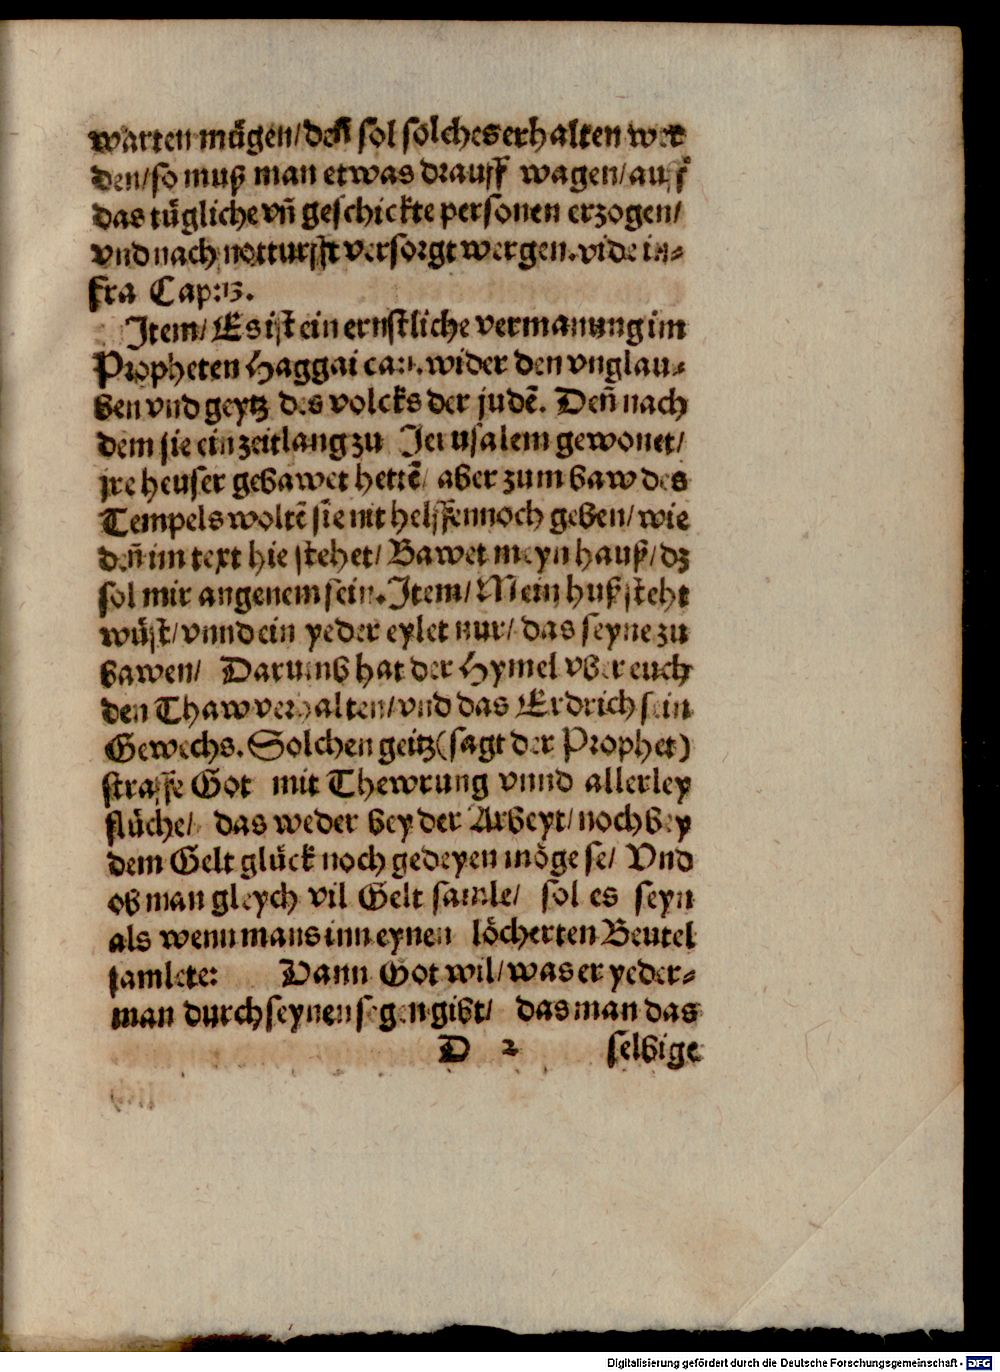 warten mügen/ deñ sol solches erhalten wer
den/ so muß man etwas drauff wagen/ auff
das tügliche vñ geschickte personen erzogen/
vnd nach notturfft versorgt wergen. vide in⸗
fra Cap: 13.
Item/ Es ist ein ernstliche vermanung im
Propheten Haggai ca. 1. wider den vnglau⸗
ben vnd geytz des volcks der judē. Deñ nach
dem sie ein zeitlang zu Jerusalem gewonet/
jre heuser gebawet hettē/ aber zum baw des
Tempels woltē sie nit helffen noch geben/ wie
deñ im text hie stehet/ Bawet meyn hauß/ dz
sol mir angenem sein. Item/ Mein huß steht
wüst/ vnnd ein yeder eylet nur/ das seyne zu
bawen/ Darumb hat der Hymel vber euch
den Thaw verhalten/ vnd das Erdrich sein
Gewechs. Solchen geitz (sagt der Prophet)
straffe Got mit Thewrung vnnd allerley
flüche/ das weder bey der Arbeyt/ noch bey
dem Gelt glück noch gedeyen möge se/ Vnd
ob man gleych vil Gelt samle/ sol es seyn
als wenn mans inn eynen löcherten Beutel
samlete: Dann Got wil/ was er yeder⸗
man durch seynen segen gibt/ das man das
D 2 selbige
Digitalisierung gefördert durch die Deutsche Forschungsgemeinschaft - DFG